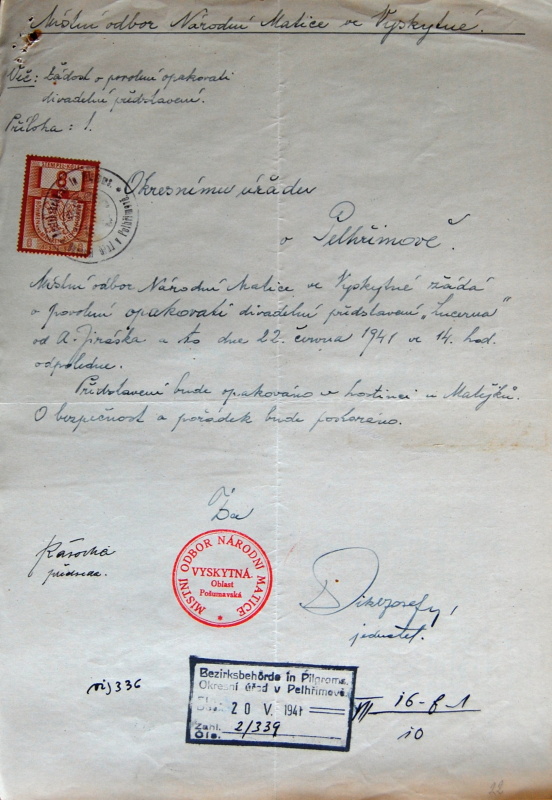 Místní odbor Národní Matice ve Vyskytné.
Věc: Žádost o povolení opakovati
divadelní představení.
Příloha: 1.
STEMPEL-KOLEK
8
Okresnímu úřadu
v Pelhřimově.
Místní odbor Národní Matice ve Vyskytné žádá
o povolení opakovati divadelní představení „Lucerna“
od A. Jiráska a to dne 22. června 1941 ve 14. hod.
odpoledne.
Představení bude opakováno v hostinci u Matějků.
O bezpečnost a pořádek bude postaráno.
Za
MÍSTNÍ ODBOR NÁRODNÍ MATICE
VYSKYTNÁ.
Oblast
Pošumavská
předseda.
jednatel.
336
Bezirksbehörde in Pilgrams.
Okresní úřad v Pelhřimově
20 V. 1941
Zahl.
Čís. 2/339
VII 16-6-1
10
22